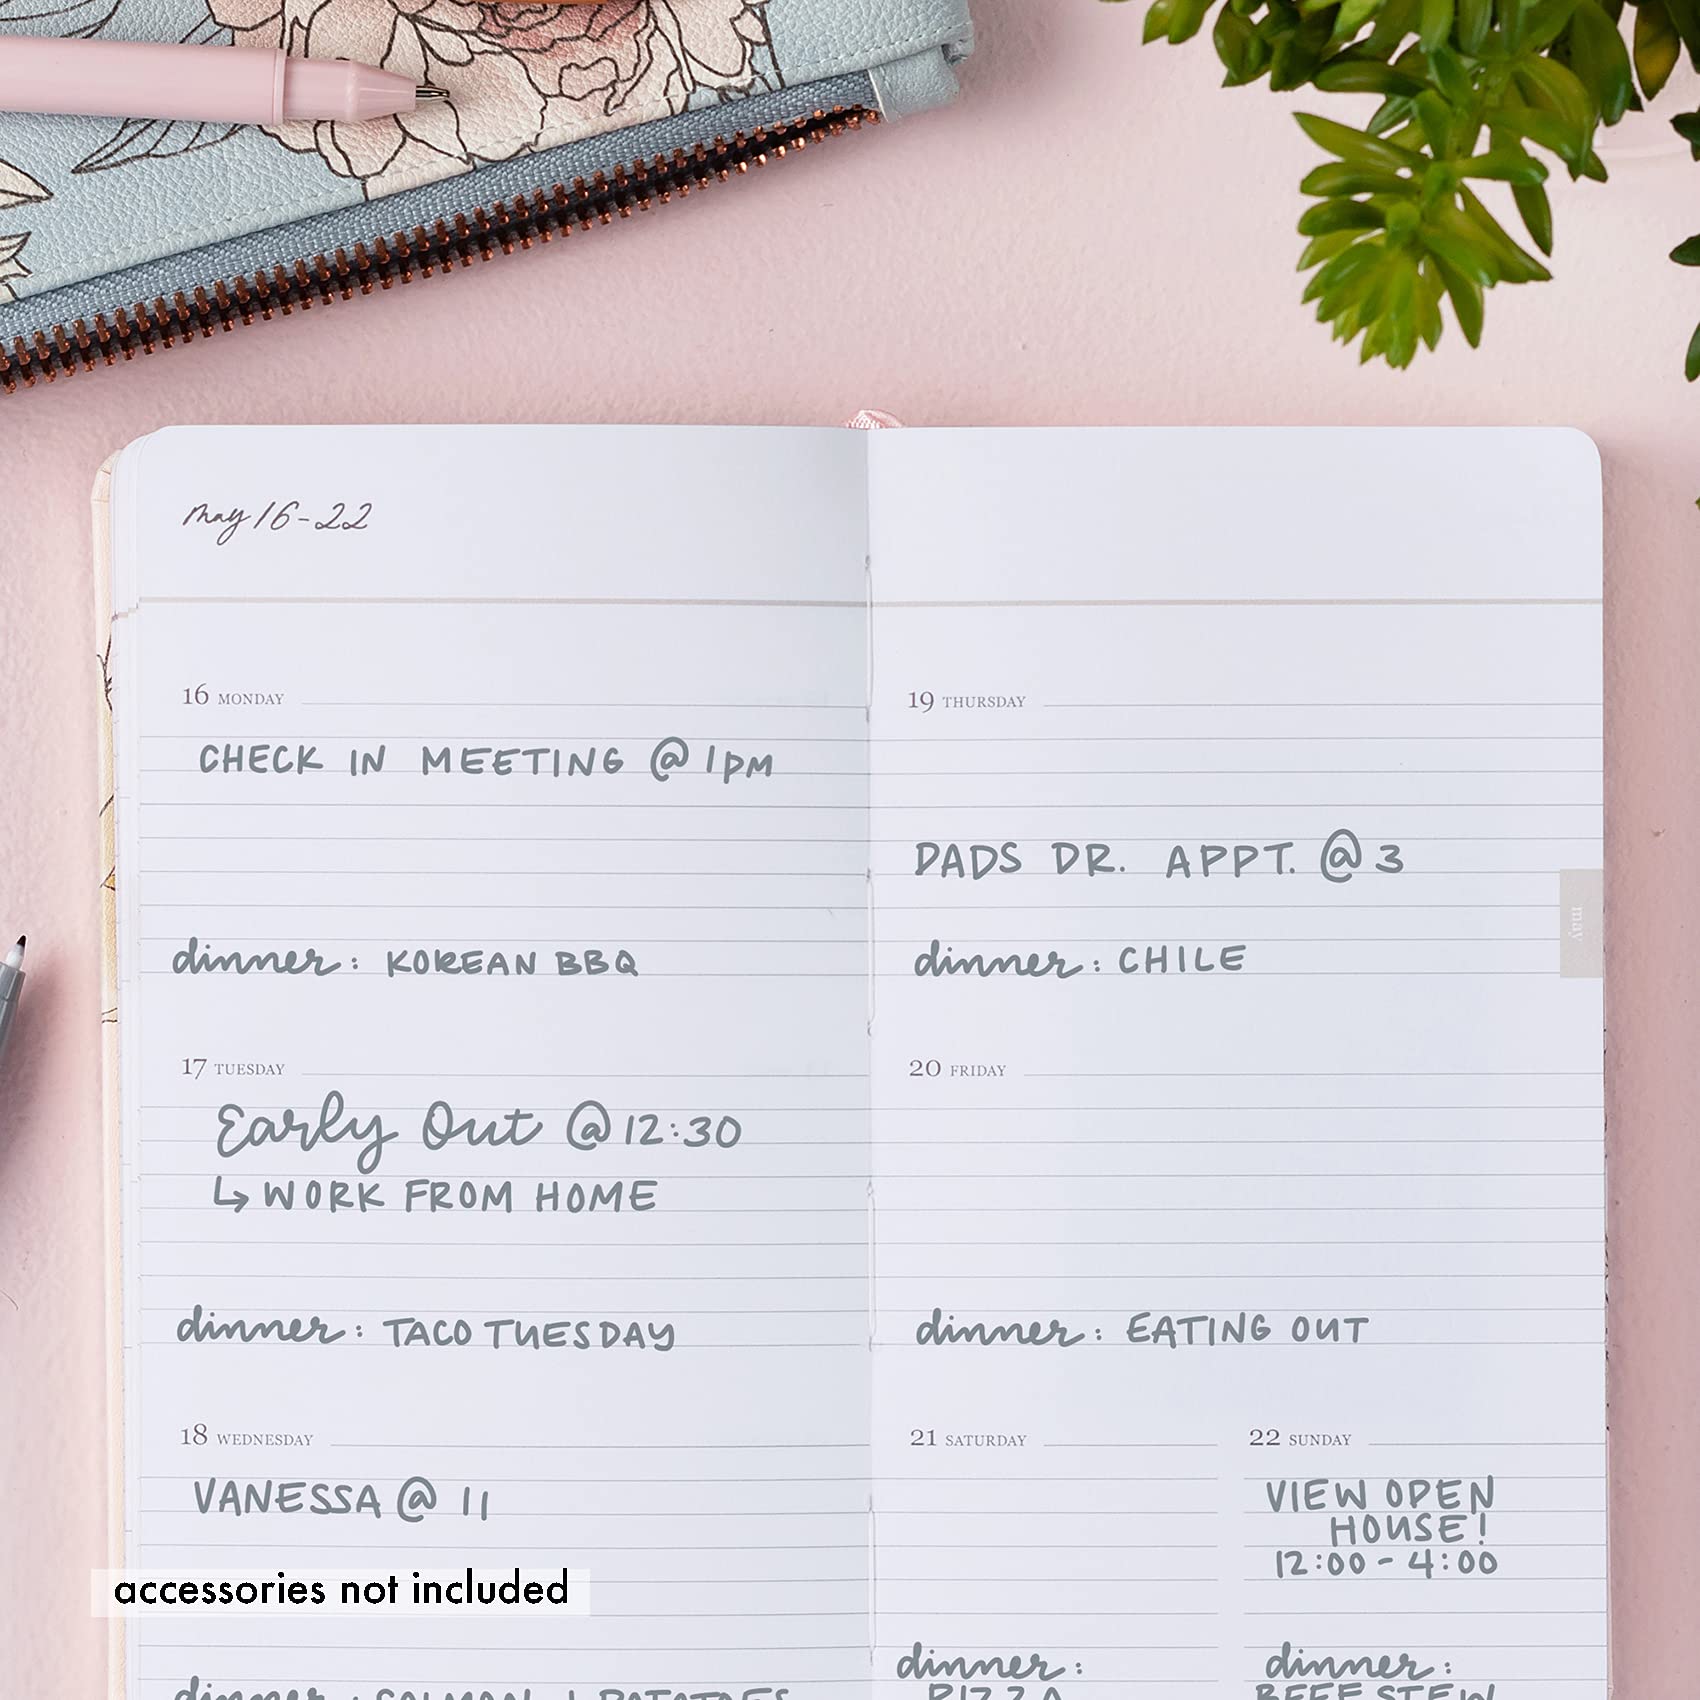 may 16-22
16 MONDAY
CHECK IN MEETING @ 1PM
dinner: KOREAN BBQ
17 TUESDAY
Early Out @ 12:30
↳ WORK FROM HOME
dinner: TACO TUESDAY
18 WEDNESDAY
VANESSA @ 11
accessories not included
dinner: SALMON + POTATOES
19 THURSDAY
DADS DR. APPT. @ 3
may
dinner: CHILE
20 FRIDAY
dinner: EATING OUT
21 SATURDAY
dinner:
PIZZA
22 SUNDAY
VIEW OPEN
HOUSE!
12:00 - 4:00
dinner:
BEEF STEW